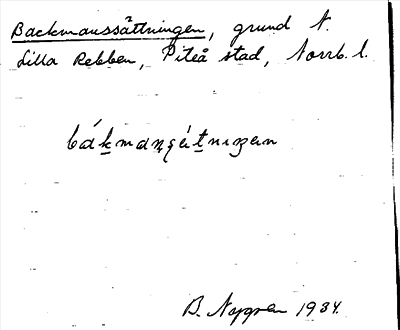 Backmanssättningen, grund N.
Lilla Rebben, Piteå stad, Norrb. l.
bákmansètningen
B. Nygren 1934.